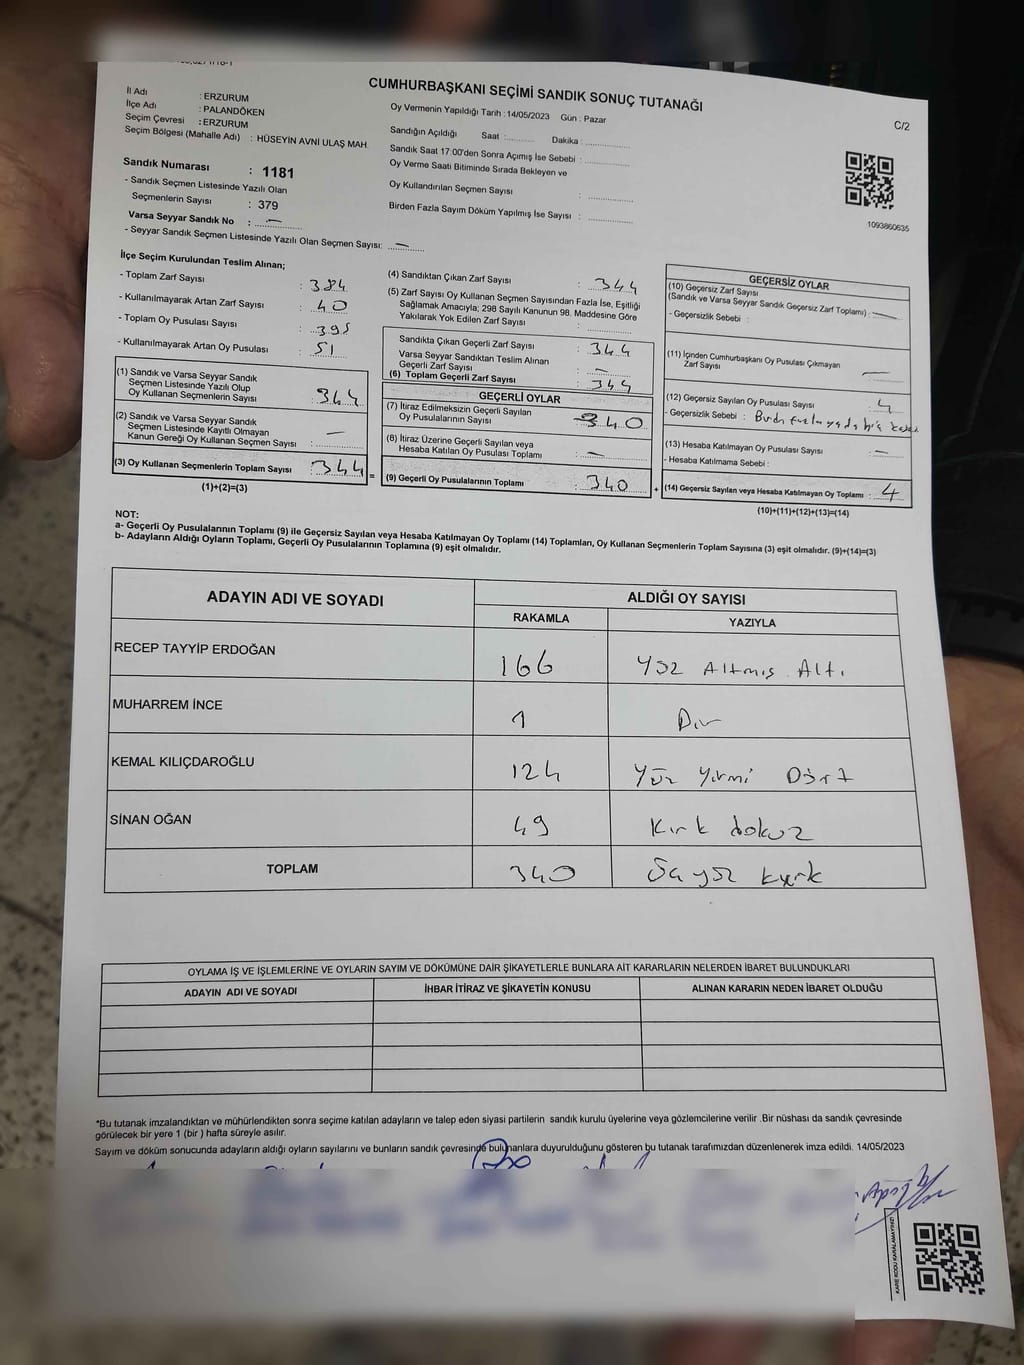 CUMHURBAŞKANI SEÇİMİ SANDIK SONUÇ TUTANAĞI
C/2
İl Adı : ERZURUM
İlçe Adı : PALANDÖKEN
Seçim Çevresi : ERZURUM
Seçim Bölgesi (Mahalle Adı) : HÜSEYİN AVNİ ULAŞ MAH.
Sandık Numarası : 1181
- Sandık Seçmen Listesinde Yazılı Olan
Seçmenlerin Sayısı : 379
Varsa Seyyar Sandık No : —
- Seyyar Sandık Seçmen Listesinde Yazılı Olan Seçmen Sayısı: —
Oy Vermenin Yapıldığı Tarih : 14/05/2023 Gün : Pazar
Sandığın Açıldığı Saat :.......... Dakika :..............
Sandık Saat 17:00'den Sonra Açımış İse Sebebi : ..............
Oy Verme Saati Bitiminde Sırada Bekleyen ve
Oy Kullandırılan Seçmen Sayısı : ..............
Birden Fazla Sayım Döküm Yapılmış İse Sayısı : ..............
1093860635
İlçe Seçim Kurulundan Teslim Alınan;
- Toplam Zarf Sayısı : 384
- Kullanılmayarak Artan Zarf Sayısı : 40
- Toplam Oy Pusulası Sayısı : 395
- Kullanılmayarak Artan Oy Pusulası : 51
(1) Sandık ve Varsa Seyyar Sandık
Seçmen Listesinde Yazılı Olup
Oy Kullanan Seçmenlerin Sayısı : 344
(2) Sandık ve Varsa Seyyar Sandık
Seçmen Listesinde Kayıtlı Olmayan
Kanun Gereği Oy Kullanan Seçmen Sayısı : —
(3) Oy Kullanan Seçmenlerin Toplam Sayısı : 344
(1)+(2)=(3)
(4) Sandıktan Çıkan Zarf Sayısı : 344
(5) Zarf Sayısı Oy Kullanan Seçmen Sayısından Fazla İse, Eşitliği
Sağlamak Amacıyla; 298 Sayılı Kanunun 98. Maddesine Göre
Yakılarak Yok Edilen Zarf Sayısı : ..............
Sandıkta Çıkan Geçerli Zarf Sayısı : 344
Varsa Seyyar Sandıktan Teslim Alınan
Geçerli Zarf Sayısı : —
(6) Toplam Geçerli Zarf Sayısı : 344
GEÇERLİ OYLAR
(7) İtiraz Edilmeksizin Geçerli Sayılan
Oy Pusulasının Sayısı : 340
(8) İtiraz Üzerine Geçerli Sayılan veya
Hesaba Katılan Oy Pusulası Toplamı : —
(9) Geçerli Oy Pusulalarının Toplamı : 340
GEÇERSİZ OYLAR
(10) Geçersiz Zarf Sayısı
(Sandık ve Varsa Seyyar Sandık Geçersiz Zarf Toplamı) : —
- Geçersizlik Sebebi :
(11) İçinden Cumhurbaşkanı Oy Pusulası Çıkmayan
Zarf Sayısı —
(12) Geçersiz Sayılan Oy Pusulası Sayısı : 4
- Geçersizlik Sebebi :
(13) Hesaba Katılmayan Oy Pusulası Sayısı : —
- Hesaba Katılmama Sebebi :
(14) Geçersiz Sayılan veya Hesaba Katılmayan Oy Toplamı : 4
(10)+(11)+(12)+(13)=(14)
NOT:
a- Geçerli Oy Pusulalarının Toplamı (9) ile Geçersiz Sayılan veya Hesaba Katılmayan Oy Toplamı (14) Toplamları, Oy Kullanan Seçmenlerin Toplam Sayısına (3) eşit olmalıdır. (9)+(14)=(3)
b- Adayların Aldığı Oyların Toplamı, Geçerli Oy Pusulalarının Toplamına (9) eşit olmalıdır.
ADAYIN ADI VE SOYADI ALDIĞI OY SAYISI
RAKAMLA YAZIYLA
RECEP TAYYİP ERDOĞAN 166 Yüz Altmış Altı
MUHARREM İNCE 1 Bir
KEMAL KILIÇDAROĞLU 124 Yüz Yirmi Dört
SİNAN OĞAN 49 Kırk dokuz
TOPLAM 340 Üçyüz kırk
OYLAMA İŞ VE İŞLEMLERİNE VE OYLARIN SAYIM VE DÖKÜMÜNE DAİR ŞİKAYETLERLE BUNLARA AİT KARARLARIN NELERDEN İBARET BULUNDUKLARI
ADAYIN ADI VE SOYADI İHBAR İTİRAZ VE ŞİKAYETİN KONUSU ALINAN KARARIN NEDEN İBARET OLDUĞU
*Bu tutanak imzalandıktan ve mühürlendikten sonra seçime katılan adayların ve talep eden siyasi partilerin sandık kurulu üyelerine veya gözlemcilerine verilir .Bir nüshası da sandık çevresinde
görülecek bir yere 1 (bir ) hafta süreyle asılır.
Sayım ve döküm sonucunda adayların aldığı oyların sayılarını ve bunların sandık çevresinde bulunanlara duyurulduğunu gösteren bu tutanak tarafımızdan düzenlenerek imza edildi. 14/05/2023
KARE KODU KARALAMAYINIZ!